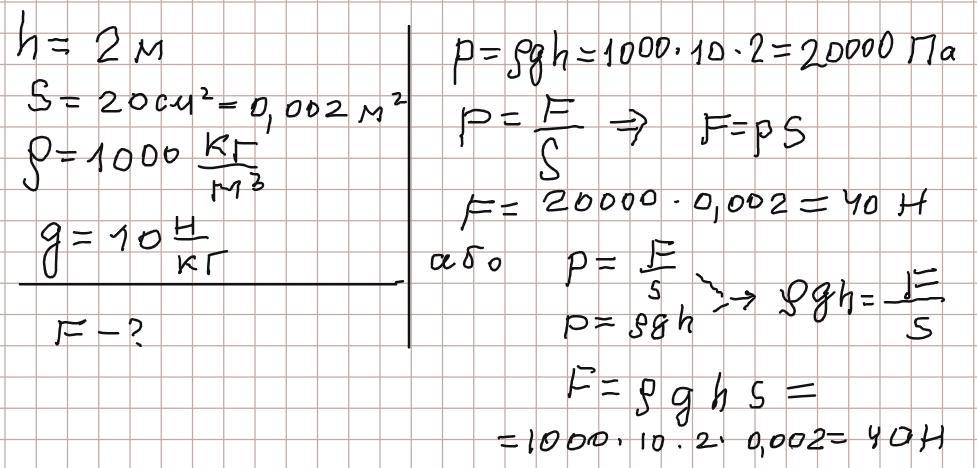 h = 2 м
S = 20 см² = 0,002 м²
ρ = 1000 кг/м³
g = 10 Н/кг
F - ?
p = ρgh = 1000 · 10 · 2 = 20000 Па
p = F/S ⇒ F = pS
F = 20000 · 0,002 = 40 Н
або p = F/S
p = ρgh → ρgh = F/S
F = ρghS =
= 1000 · 10 · 2 · 0,002 = 40 Н